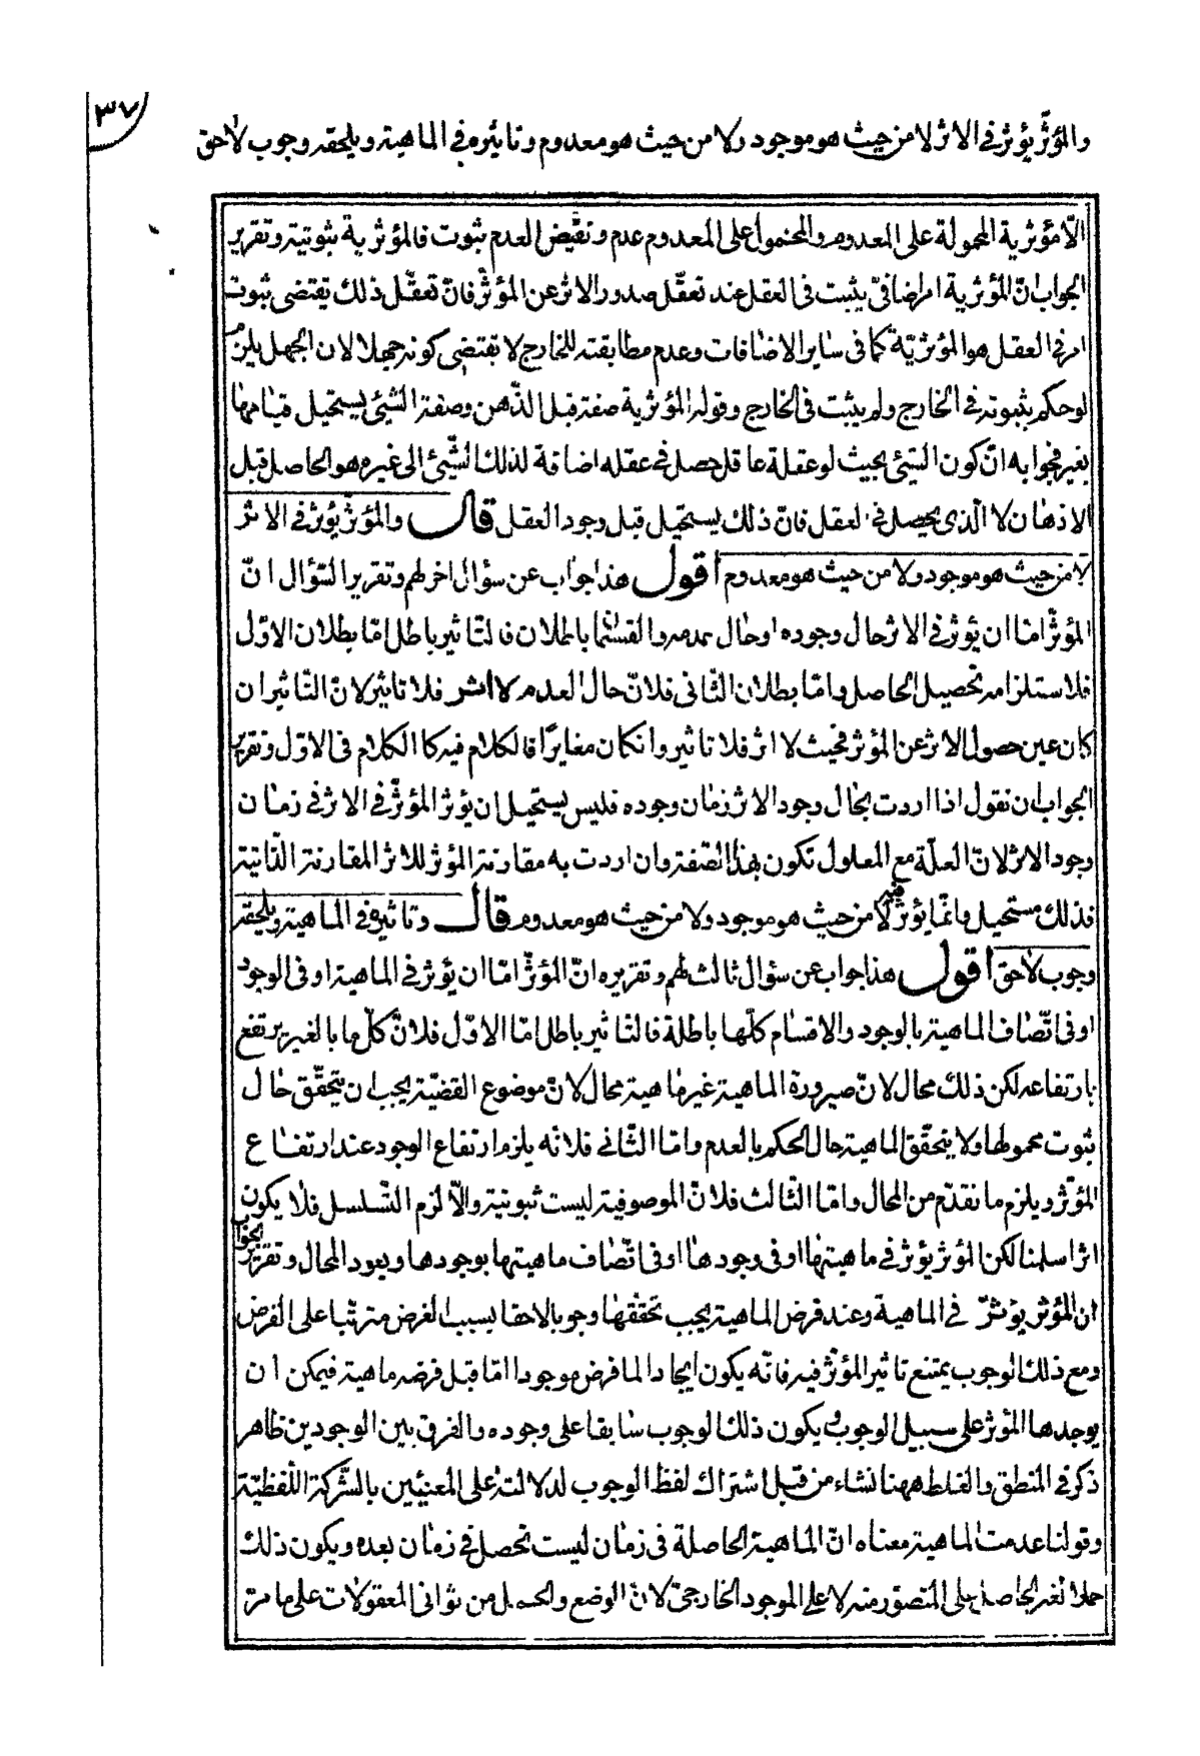 ٣٧
والمؤثّر يؤثر فى الاثر لا من حيث هو موجود ولا من حيث هو معدوم وتاثيره فى الماهية ويلحقه وجوب لاحق
الّا مؤثرية المحمولة على المعدوم والمحمول على المعدوم عدم ونقيض العدم ثبوت فالمؤثرية ثبوتية وتقرير
الجواب انّ المؤثرية امر اضافىّ يثبت فى العقل عند تعقّل صدور الاثر عن المؤثّر فانّ تعقّل ذلك يقتضى ثبوت
امر فى العقل هو المؤثريّة كما فى ساير الاضافات وعدم مطابقته للخارج لا يقتضى كونه جهلا لان الجهل يلزم
لو حكم بثبوته فى الخارج ولم يثبت فى الخارج وقوله المؤثرية صفة قبل الذّهن وصفة الشئ يستحيل قيامها
بغيره فجوابه انّ كون الشئ بحيث لو عقله عاقل حصل فى عقله اضافة لذلك الشّئ الى غيره هو الحاصل قبل
الاذهان لا الّذى يحصل فى العقل فانّ ذلك يستحيل قبل وجود العقل قال والمؤثّر يؤثر فى الاثر
لا من حيث هو موجود ولا من حيث هو معدوم اقول هذا جواب عن سؤال اخر لهم وتقرير السّؤال انّ
المؤثّر امّا ان يؤثر فى الاثر حال وجوده او حال عدمه والقسمان باطلان فالتّاثير باطل امّا بطلان الاوّل
فلاستلزامه تحصيل الحاصل وامّا بطلان الثّانى فلانّ حال العدم لا اثر فلا تاثير لانّ التّاثير ان
كان عين حصول الاثر عن المؤثر فحيث لا اثر فلا تاثير وان كان مغايرًا فالكلام فيه كالكلام فى الاوّل وتقرير
الجواب ان نقول اذا اردت بحال وجود الاثر زمان وجوده فليس يستحيل ان يؤثر المؤثّر فى الاثر فى زمان
وجود الاثر لانّ العلّة مع المعلول تكون بهذا الصّفة وان اردت به مقارنة المؤثر للاثر المقارنة الذّاتية
فذلك مستحيل وانّما يؤثر فيه لا من حيث هو موجود ولا من حيث هو معدوم قال وتاثيره فى الماهية ويلحقه
وجوب لاحق اقول هذا جواب عن سؤال ثالث لهم وتقريره انّ المؤثّر امّا ان يؤثر فى الماهية او فى الوجود
او فى اتّصاف الماهية بالوجود والاقسام كلّها باطلة فالتّاثير باطل امّا الاوّل فلانّ كلّ ما بالغير يرتفع
بارتفاعه لكن ذلك محال لانّ صيرورة الماهية غير ماهية محال لانّ موضوع القضيّة يجب ان يتحقّق حال
ثبوت محمولها ولا يتحقّق الماهية حال الحكم بالعدم وامّا الثّانى فلانّه يلزم ارتفاع الوجود عند ارتفاع
المؤثّر ويلزم ما تقدّم من المحال وامّا الثّالث فلانّ الموصوفية ليست ثبوتية والّا لزم التّسلسل فلا يكون
اثرا سلمنا لكن المؤثر يؤثر فى ماهيتها او فى وجودها او فى اتّصاف ماهيتها بوجودها ويعود المحال وتقرير الجواب
ان المؤثر يؤثّر فى الماهية وعند فرض الماهية يجب تحقّقها وجوبا لاحقا بسبب الفرض مترتّبا على الفرض
ومع ذلك الوجوب يمتنع تاثير المؤثّر فيه فانّه يكون ايجادا لما فرض موجودا امّا قبل فرضه ماهية فيمكن ان
يوجدها المؤثر على سبيل الوجوب ويكون ذلك الوجوب سابقا على وجوده والفرق بين الوجودين ظاهر
ذكر فى المنطق والغلط ههنا نشاء من قبل اشتراك لفظ الوجوب لدلالته على المعنيين بالشّركة اللّفظيّة
وقولنا عدمت الماهية معناه انّ الماهية الحاصلة فى زمان ليست تحصل فى زمان بعده ويكون ذلك
حملا لغير الحاصل على المتصوّر منه لا على الموجود الخارجىّ لانّ الوضع والحمل من ثوانى المعقولات على ما مرّ